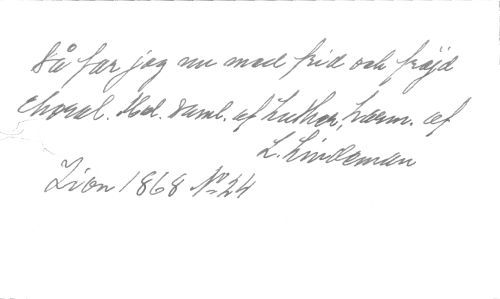 Så far jag nu med frid och fröjd
Choral. Mel. saml. af Luther, harm. af
L. Lindeman
Zion 1868 No 24